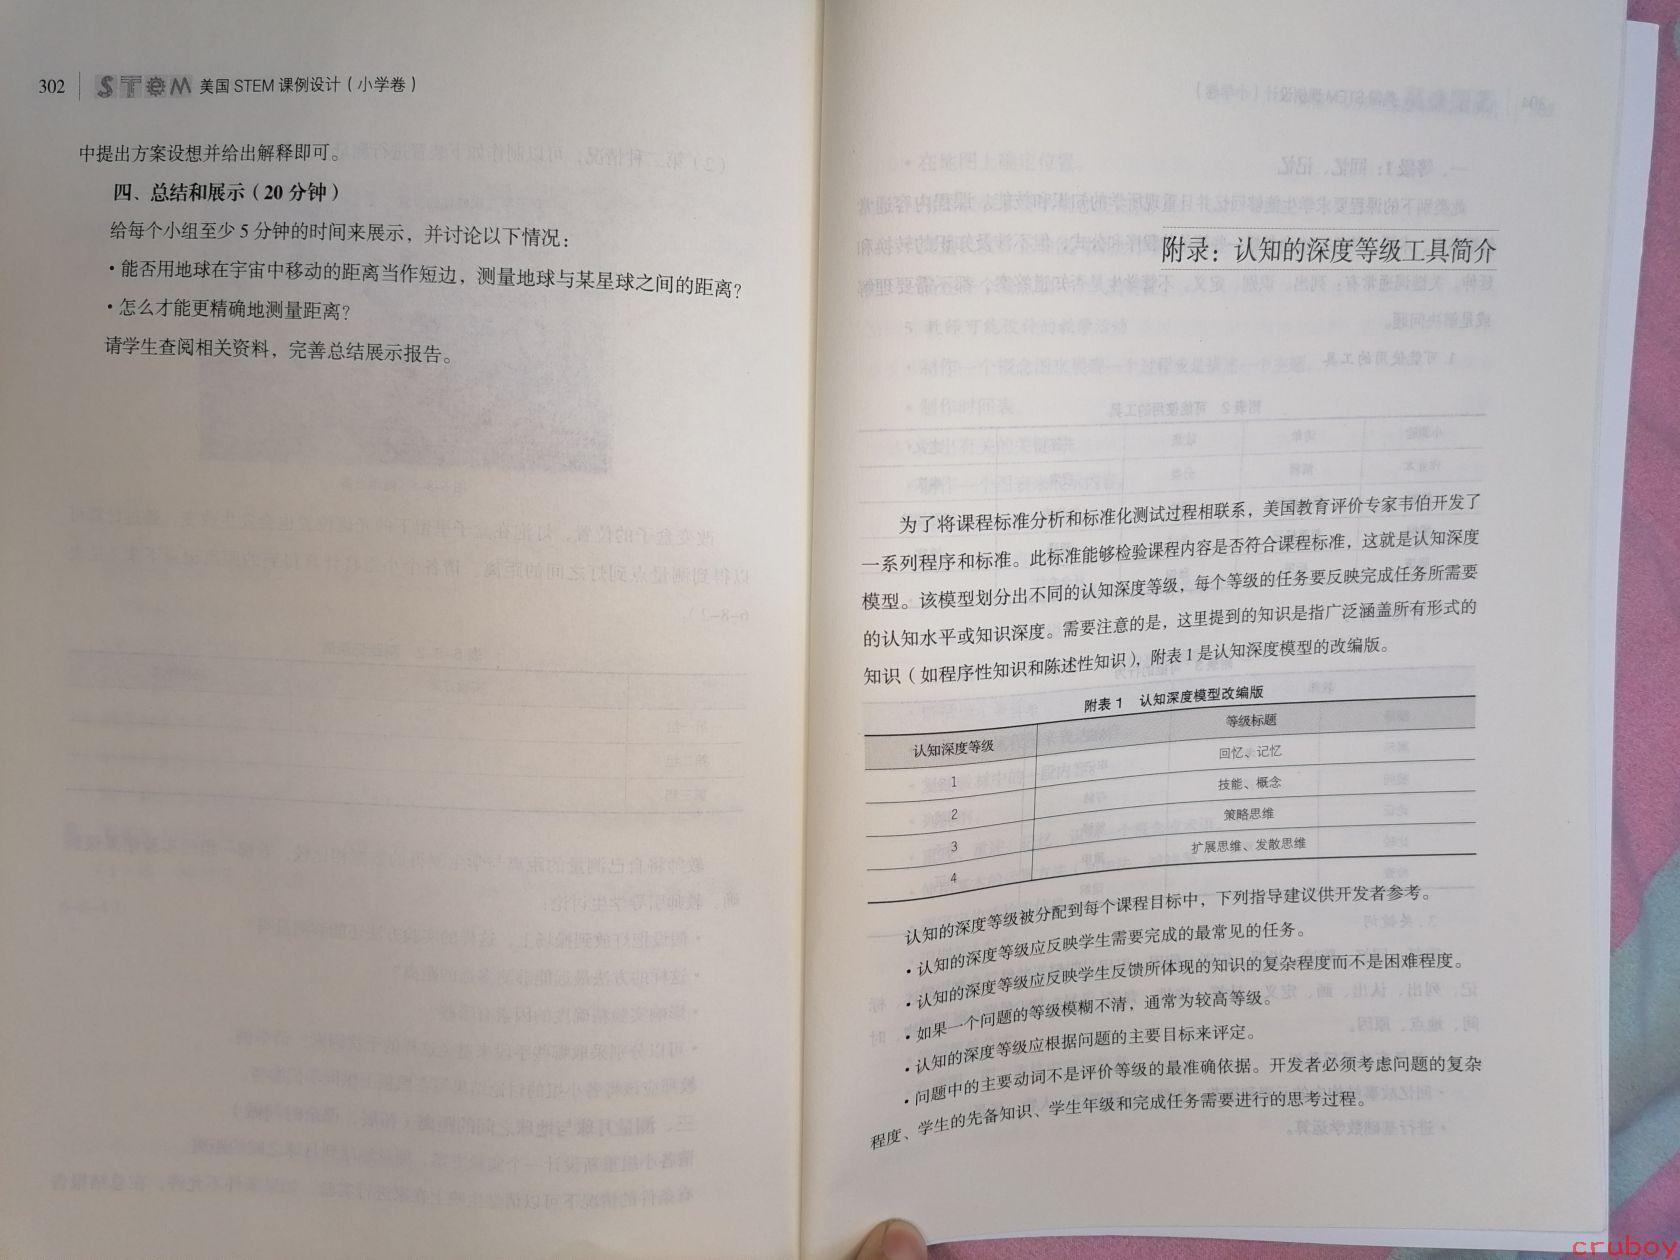 302
STEM 美国 STEM 课例设计（小学卷）
中提出方案设想并给出解释即可。
四、总结和展示（20 分钟）
给每个小组至少 5 分钟的时间来展示，并讨论以下情况：
·能否用地球在宇宙中移动的距离当作短边，测量地球与某星球之间的距离？
·怎么才能更精确地测量距离？
请学生查阅相关资料，完善总结展示报告。
附录：认知的深度等级工具简介
为了将课程标准分析和标准化测试过程相联系，美国教育评价专家韦伯开发了
一系列程序和标准。此标准能够检验课程内容是否符合课程标准，这就是认知深度
模型。该模型划分出不同的认知深度等级，每个等级的任务要反映完成任务所需要
的认知水平或知识深度。需要注意的是，这里提到的知识是指广泛涵盖所有形式的
知识（如程序性知识和陈述性知识），附表 1 是认知深度模型的改编版。
附表 1 认知深度模型改编版
认知深度等级 等级标题
1 回忆、记忆
2 技能、概念
3 策略思维
4 扩展思维、发散思维
认知的深度等级被分配到每个课程目标中，下列指导建议供开发者参考。
·认知的深度等级应反映学生需要完成的最常见的任务。
·认知的深度等级应反映学生反馈所体现的知识的复杂程度而不是困难程度。
·如果一个问题的等级模糊不清，通常为较高等级。
·认知的深度等级应根据问题的主要目标来评定。
·问题中的主要动词不是评价等级的最准确依据。开发者必须考虑问题的复杂
程度、学生的先备知识、学生年级和完成任务需要进行的思考过程。
cruboy